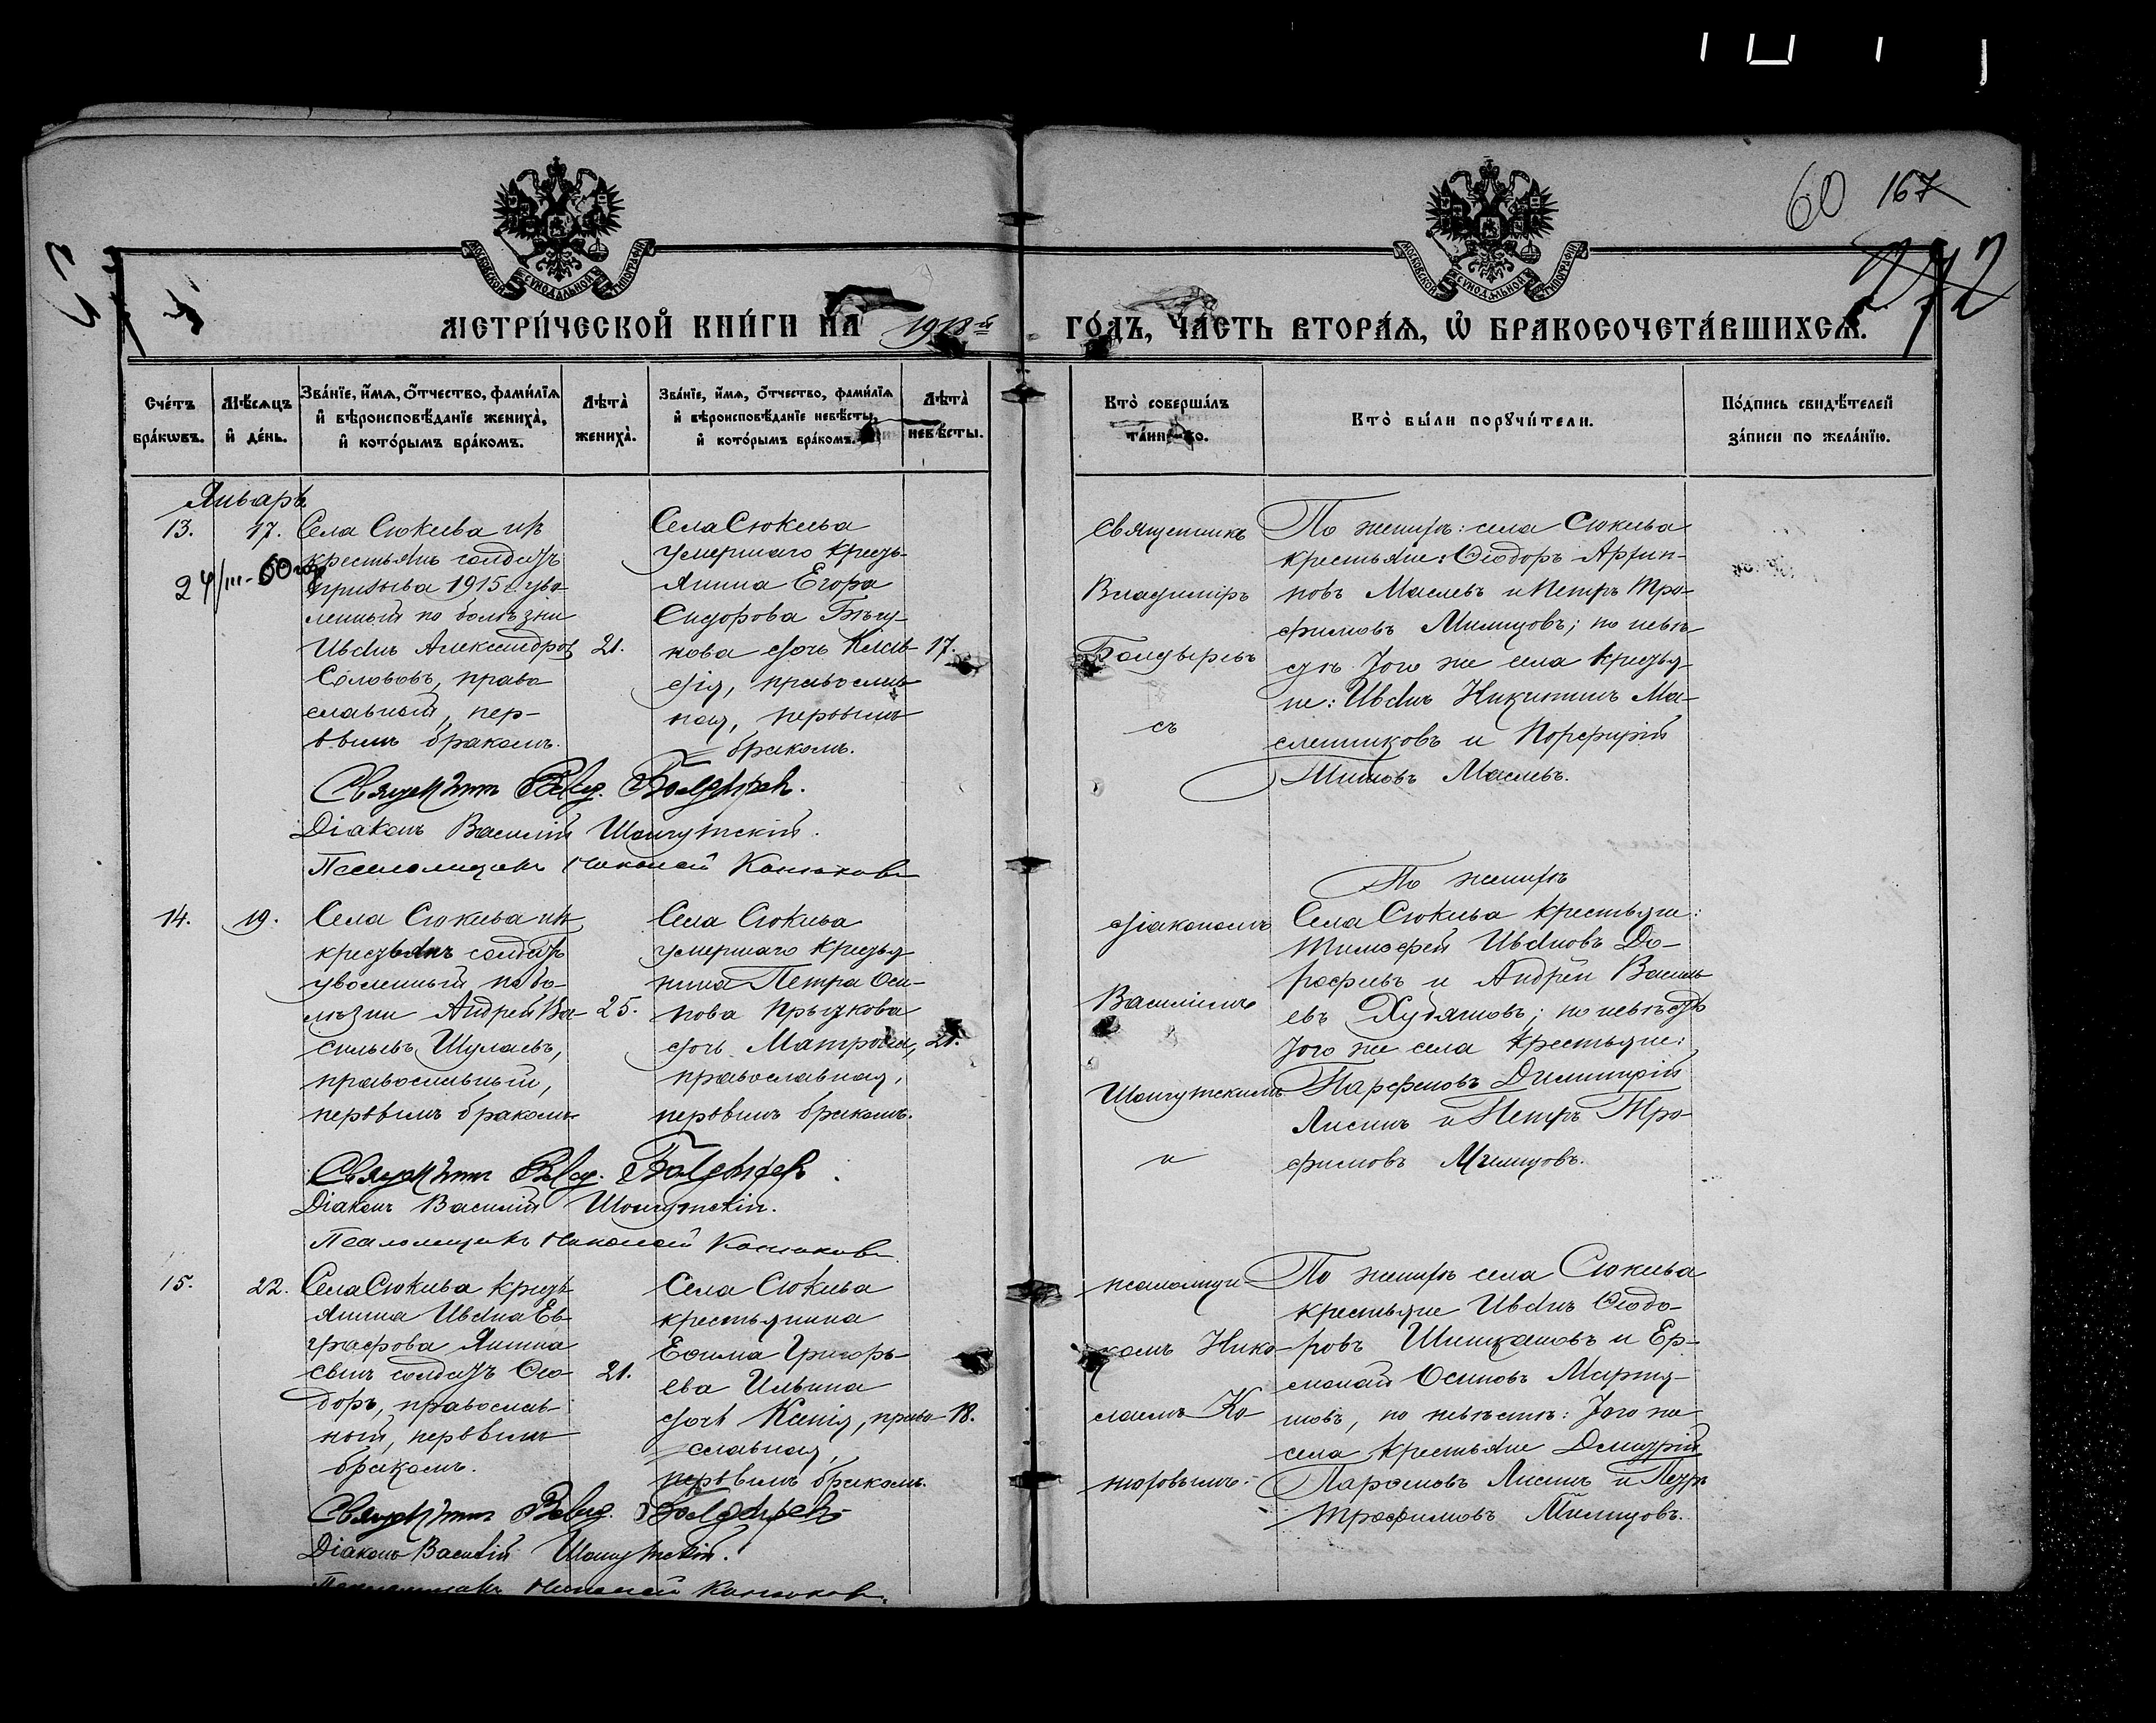 60 167
МОСКОВСКОЙ СѴНОДАЛЬНОЙ ТИПОГРАФІИ
МОСКОВСКОЙ СѴНОДАЛЬНОЙ ТИПОГРАФІИ
МЕТРИ́ЧЕСКОЙ КНИ́ГИ НА 1918й ГО́ДЪ, ЧА́СТЬ ВТОРА́Ѧ, Ѡ҆ БРАКОСОЧЕТА́ВШИХСѦ.
Сче́тъ бра́кѡвъ.
Мѣ́сѧцъ и҆ де́нь.
Зва́нїе, и҆́мѧ, ѻ҆́тчество, фами́лїѧ и҆ вѣроисповѣ́данїе жениха̀, и҆ кото́рымъ бра́комъ.
Лѣта̀ жениха̀.
Зва́нїе, и҆́мѧ, ѻ҆́тчество, фами́лїѧ и҆ вѣроисповѣ́данїе невѣ́сты, и҆ кото́рымъ бра́комъ.
Лѣта̀ невѣ́сты.
Кто̀ соверша́лъ та́инство.
Кто̀ бы́ли порꙋчи́тели.
По́дпись свидѣ́телей за́писи по жела́нїю.
Январь
13.
17.
Села Сюкѣева изъ
крестьянъ солдатъ
призыва 1915 г. уво-
ленный по болѣзни
Иванъ Александровъ
Солововъ, право
славный, пер-
вымъ бракомъ.
21.
Села Сюкеева
умершаго кресть-
янина Егора
Сидорова Бѣгу-
нова дочь Клав-
дія, православ
ная, первымъ
бракомъ.
17.
24/III-60
Священникъ
Владиміръ
Болдыревъ
съ
По женихѣ: села Сюкеева
крестьяне: Ѳеодоръ
новъ Маслевъ и Петръ Тро-
фимовъ Милицовъ; по невѣ-
стѣ того же села крестья-
не: Иванъ Никитинъ Ма-
сленниковъ и Порфирій
Титовъ Маслевъ.
Священникъ Влад. Болдыревъ.
Діаконъ Василій Шонгутскій.
Псаломщикъ Николай Конюховъ
14.
19.
Села Сюкеева изъ
крестьянъ солдатъ
уволенный по бо-
лѣзни Андрей Ва-
сильевъ Шулаевъ,
православный,
первымъ бракомъ
25.
Села Сюкеева
умершаго крестья
нина Петра Оси-
пова Прыткова
дочь Матрона,
православная,
первымъ бракомъ.
21.
діакономъ
Василіемъ
Шонгутскимъ
и
По женихѣ
Села Сюкеева крестьяне:
Тимофей Ивановъ До-
рофеевъ и Андрей Василь
евъ Худяшовъ; по невѣстѣ
того же села крестьяне:
Парфеновъ Димитрій
Лисинъ и Петръ Тро-
фимовъ Милицовъ.
Священникъ Влад. Болдыревъ.
Діаконъ Василій Шонгутскій.
Псаломщикъ Николай Конюховъ
15.
22.
Села Сюкеева кресть
янина Ивана Ев-
графова Янина
сынъ солдатъ Ѳео-
доръ, православ-
ный, первымъ
бракомъ.
21.
Села Сюкеева
крестьянина
Ефима Григорь-
ева Ильина
дочь Ксенія, право-
славная,
первымъ бракомъ.
18.
псаломщи-
комъ Нико-
лаемъ Ко-
нюховымъ.
По женихѣ села Сюкеева
крестьяне Иванъ Ѳеодо-
ровъ Шишкановъ и Ер-
молай Осиповъ Мартья-
новъ, по невѣстѣ: того же
села крестьяне Димитрій
Парфеновъ Лисинъ и Петръ
Трофимовъ Милицовъ.
Священникъ Влад. Болдыревъ
Діаконъ Василій Шонгутскій.
Псаломщикъ Николай Конюховъ.